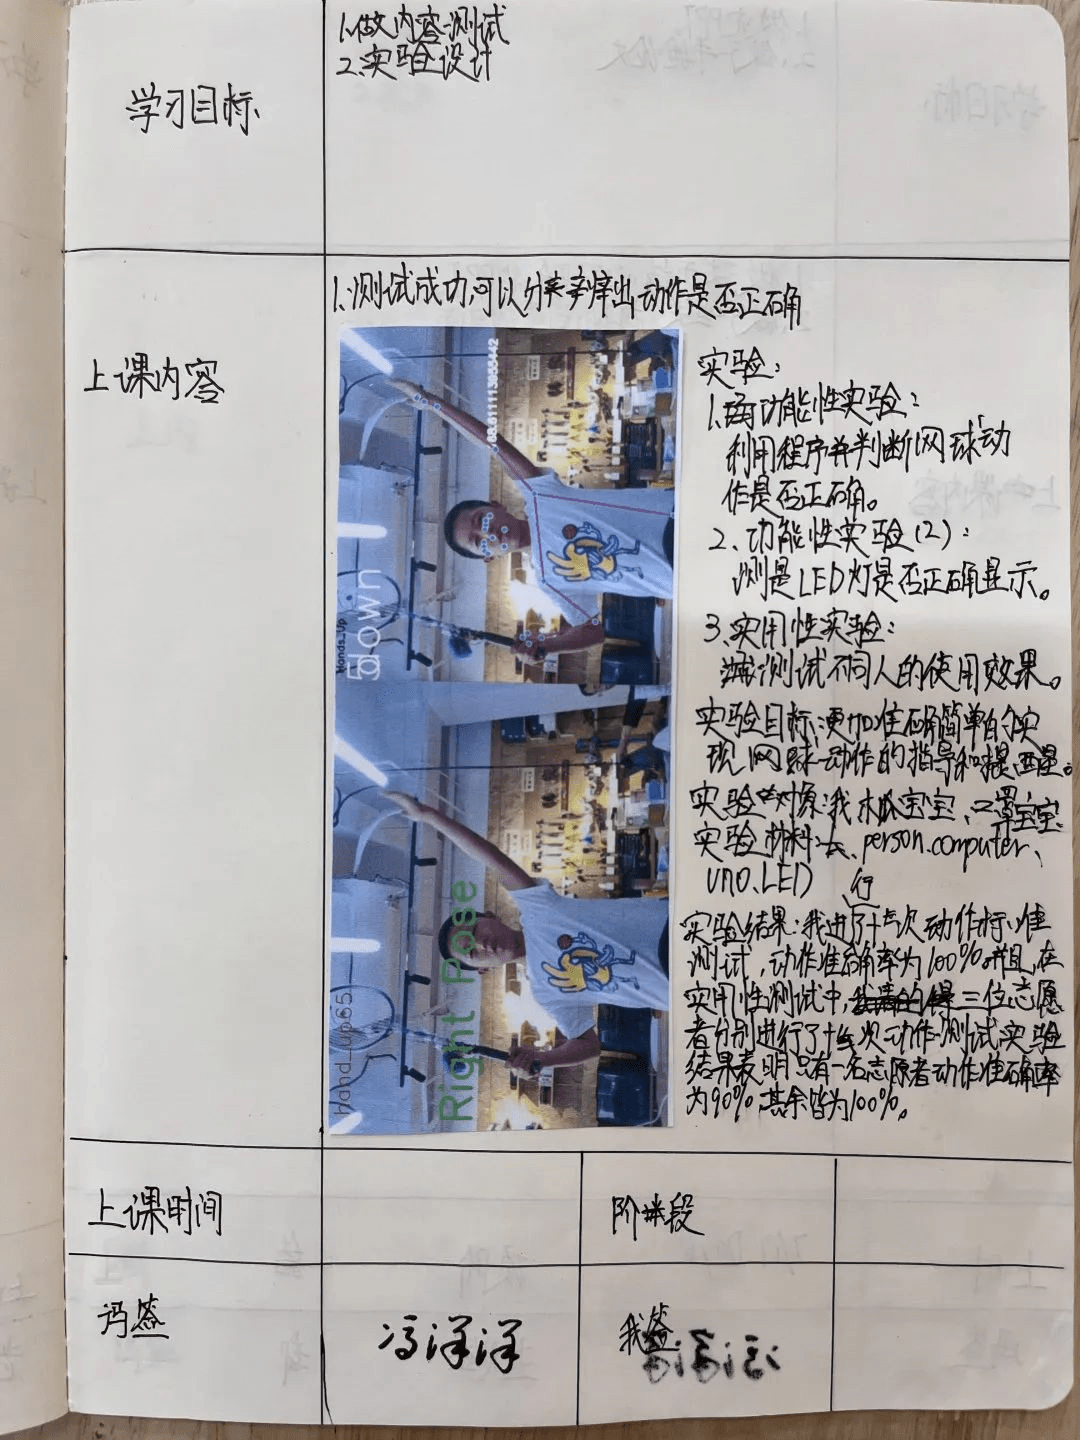 1.做内容测试
2.实验设计
学习目标
1.测试成功,可以分辨出动作是否正确
上课内容
98.611113955442
Hands_Up
down
hand_up65
Right Pose
实验:
1.功能性实验:
利用程序并判断网球动
作是否正确。
2、功能性实验(2):
测是LED灯是否正确显示。
3.实用性实验:
测试不同人的使用效果。
实验目标:更加准确简单的实
现网球动作的指导和提醒。
实验对像:我、木瓜宝宝、口罩宝宝
实验材料:person.computer、
uno、LED
实验结果:我进行了十次动作标准
测试,动作准确率为100%。并且,在
实用性测试中,三位志愿
者分别进行了十次动作测试实验
结果表明只有一名志愿者动作准确率
为90%,其余皆为100%。
上课时间
阶段
冯签
冯洋洋
我签